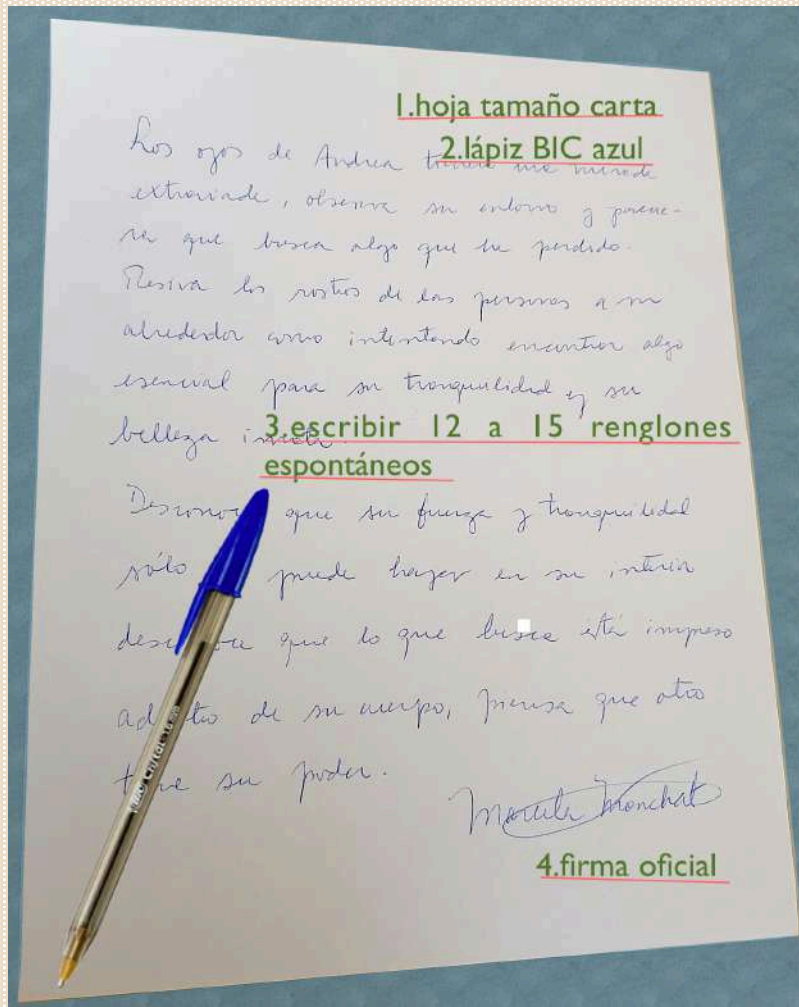 1.hoja tamaño carta
2.lápiz BIC azul
Los ojos de Andrea tienen una mirada
extraviada, observa su entorno y parecie-
ra que busca algo que ha perdido.
Revisa los rostros de las personas a su
alrededor como intentando encontrar algo
esencial para su tranquilidad y su
belleza
3.escribir 12 a 15 renglones
espontáneos
que su fuerza y tranquilidad
sólo puede hayar en su interior
que lo que busca está impreso
de su cuerpo, piensa que otro
su poder.
Monchat
4.firma oficial
BIC Cristal